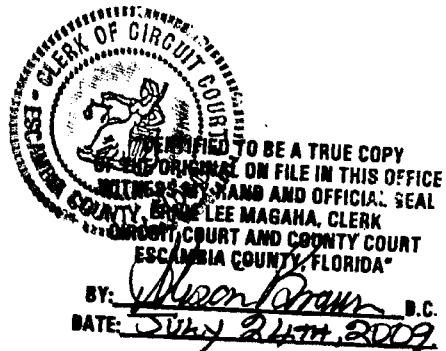 CLERK OF CIRCUIT COURT
ESCAMBIA COUNTY,
CERTIFIED TO BE A TRUE COPY
OF THE ORIGINAL ON FILE IN THIS OFFICE
WITNESS MY HAND AND OFFICIAL SEAL
ERNIE LEE MAGAHA, CLERK
CIRCUIT COURT AND COUNTY COURT
ESCAMBIA COUNTY, FLORIDA"
BY: Alison Brown D.C.
DATE: JULY 24TH, 2009